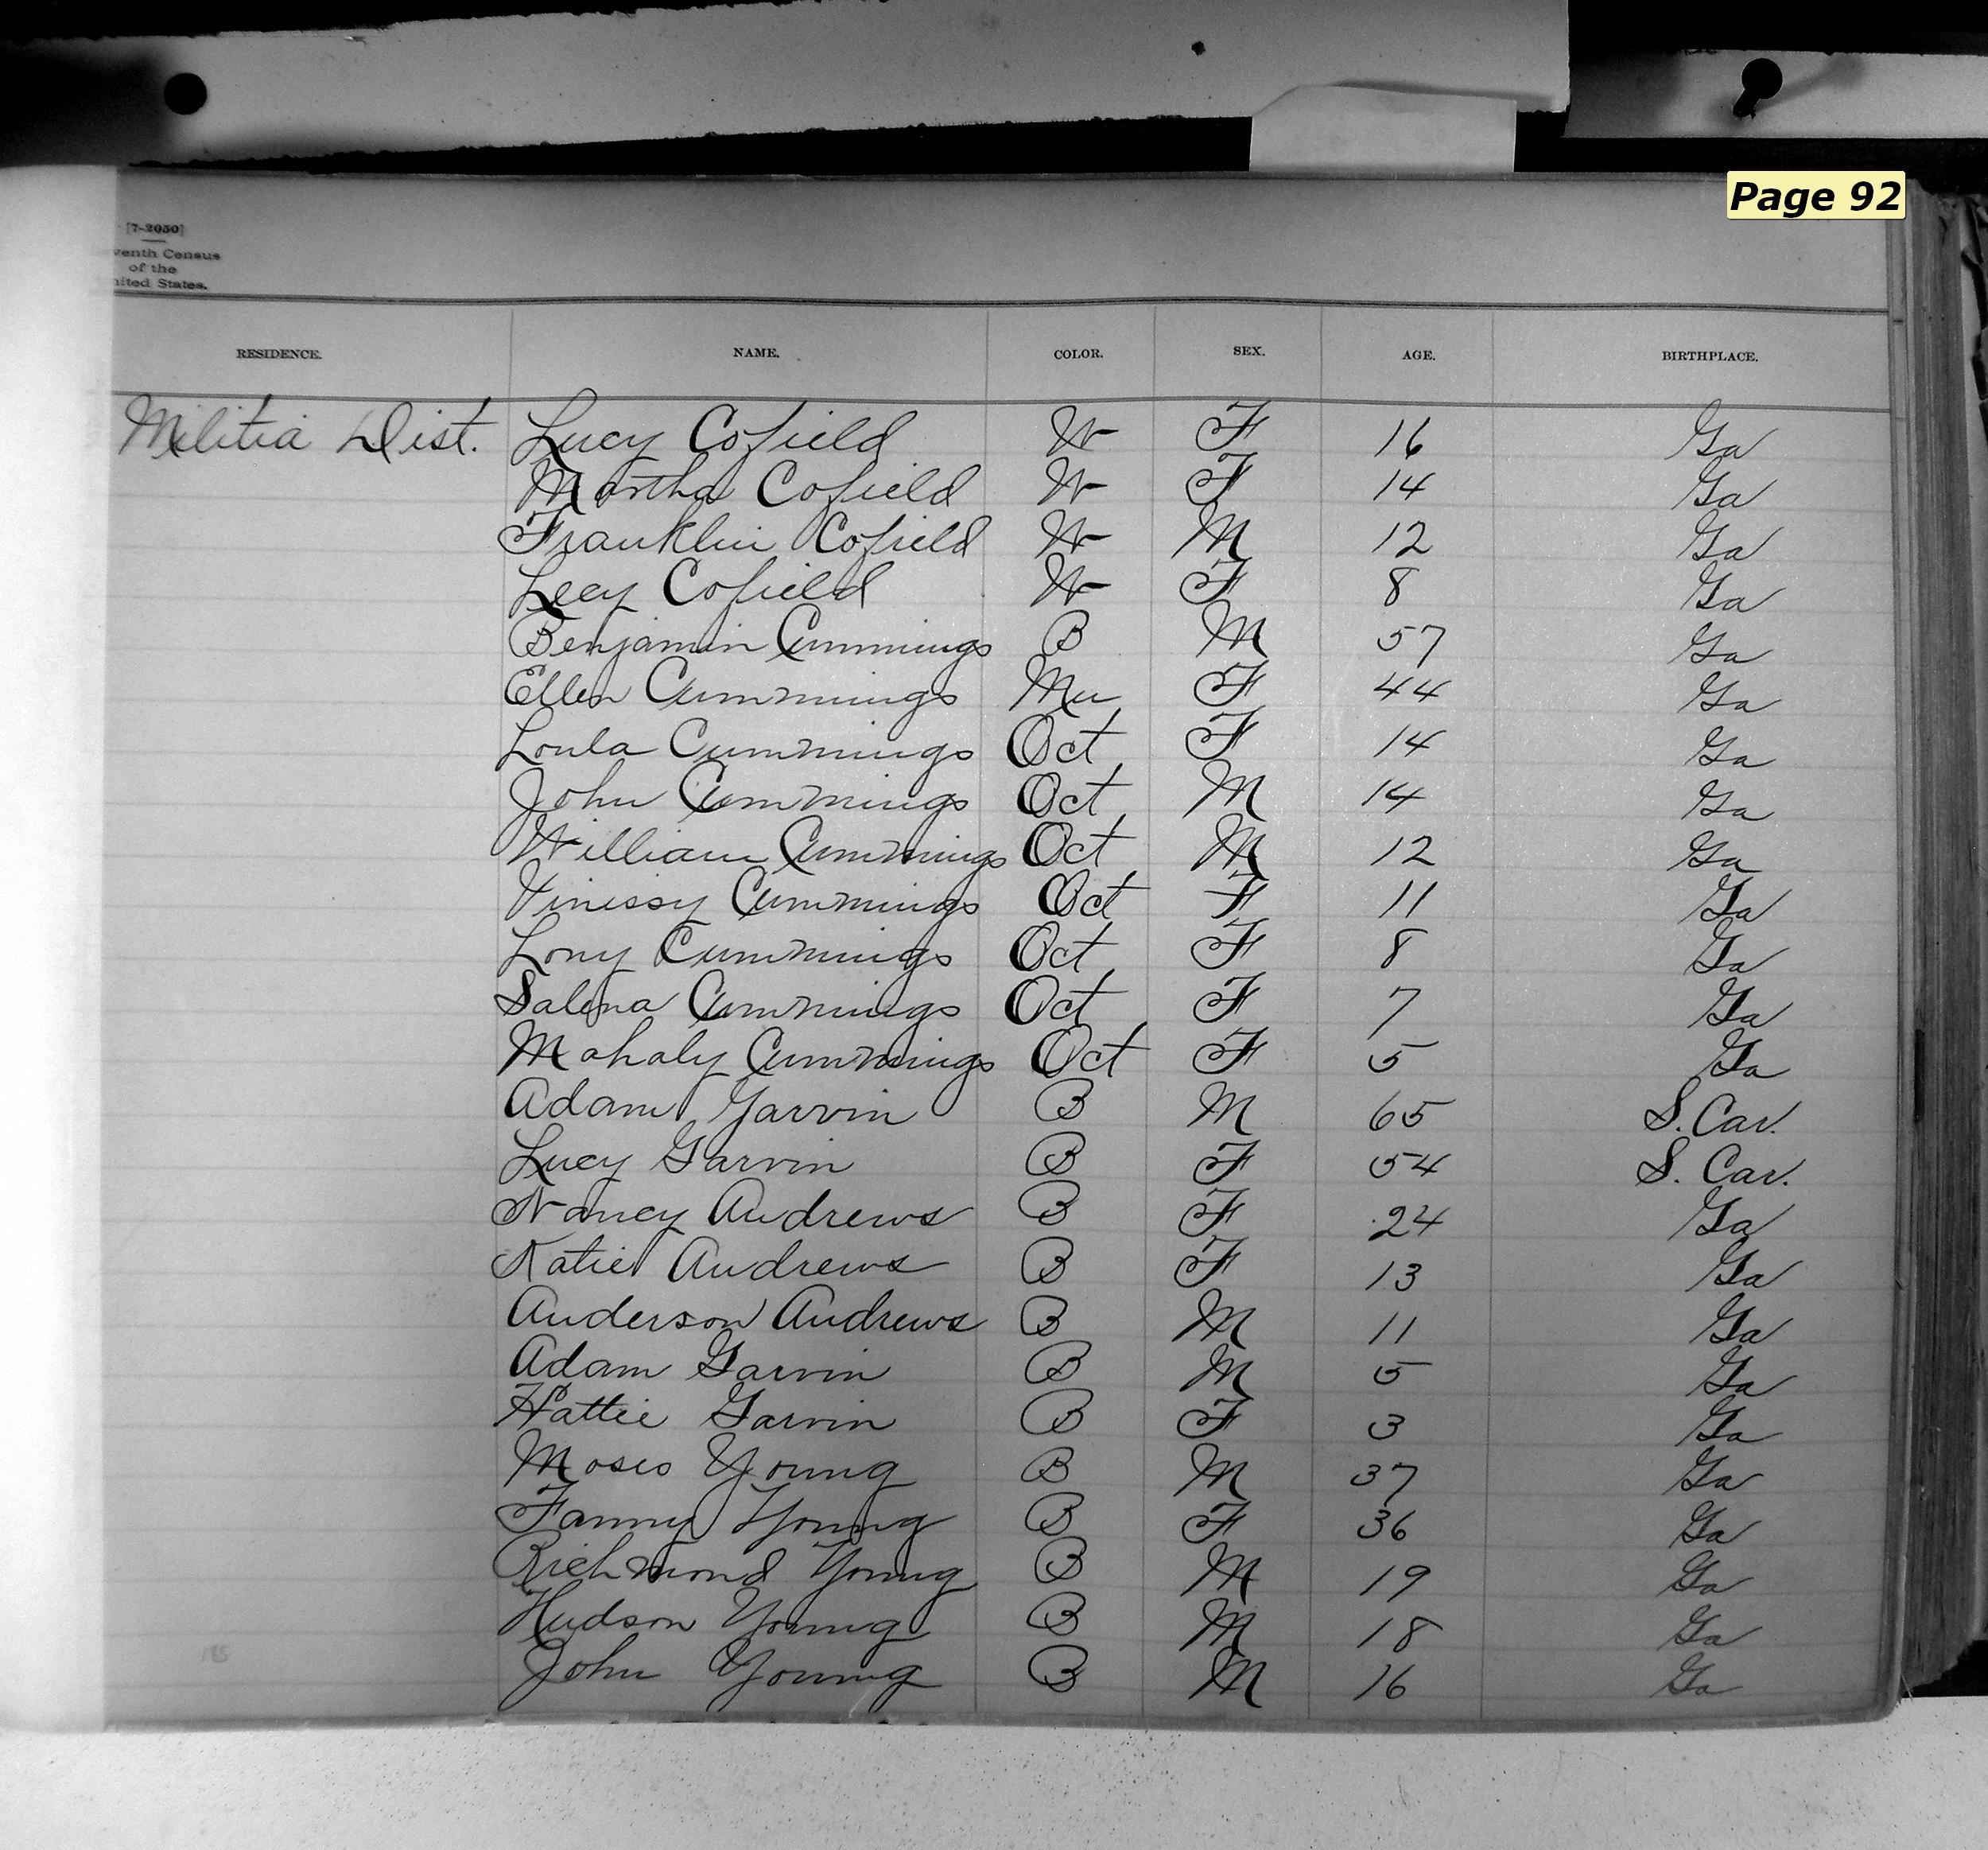 Page 92
[7-2050]
venth Census
of the
nited States.
RESIDENCE. NAME. COLOR. SEX. AGE. BIRTHPLACE.
Militia Dist. Lucy Cofield W F 16 Ga
Martha Cofield W F 14 Ga
Franklin Cofield W M 12 Ga
Lecy Cofield W F 8 Ga
Benjamin Cummings B M 57 Ga
Ellen Cummings Mu F 44 Ga
Loula Cummings Oct F 14 Ga
John Cummings Oct M 14 Ga
William Cummings Oct M 12 Ga
Vinissy Cummings Oct F 11 Ga
Lony Cummings Oct F 8 Ga
Salena Cummings Oct F 7 Ga
Mahaly Cummings Oct F 5 Ga
Adam Garvin B M 65 S. Car.
Lucy Garvin B F 54 S. Car.
Nancy Andrews B F 24 Ga
Katie Andrews B F 13 Ga
Anderson Andrews B M 11 Ga
Adam Garvin B M 5 Ga
Hattie Garvin B F 3 Ga
Moses Young B M 37 Ga
Fanny Young B F 36 Ga
Richmond Young B M 19 Ga
Hudson Young B M 18 Ga
John Young B M 16 Ga